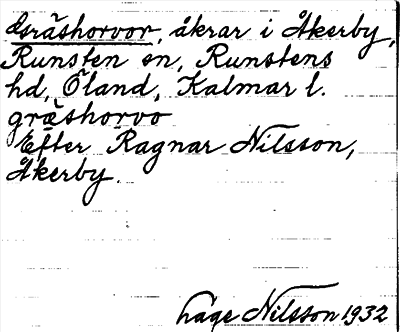 Gräshorvor, åkrar i Åkerby,
Runsten sn, Runstens
hd, Öland, Kalmar l.
gräshorvo
Efter Ragnar Nilsson,
Åkerby.
Lage Nilsson 1932